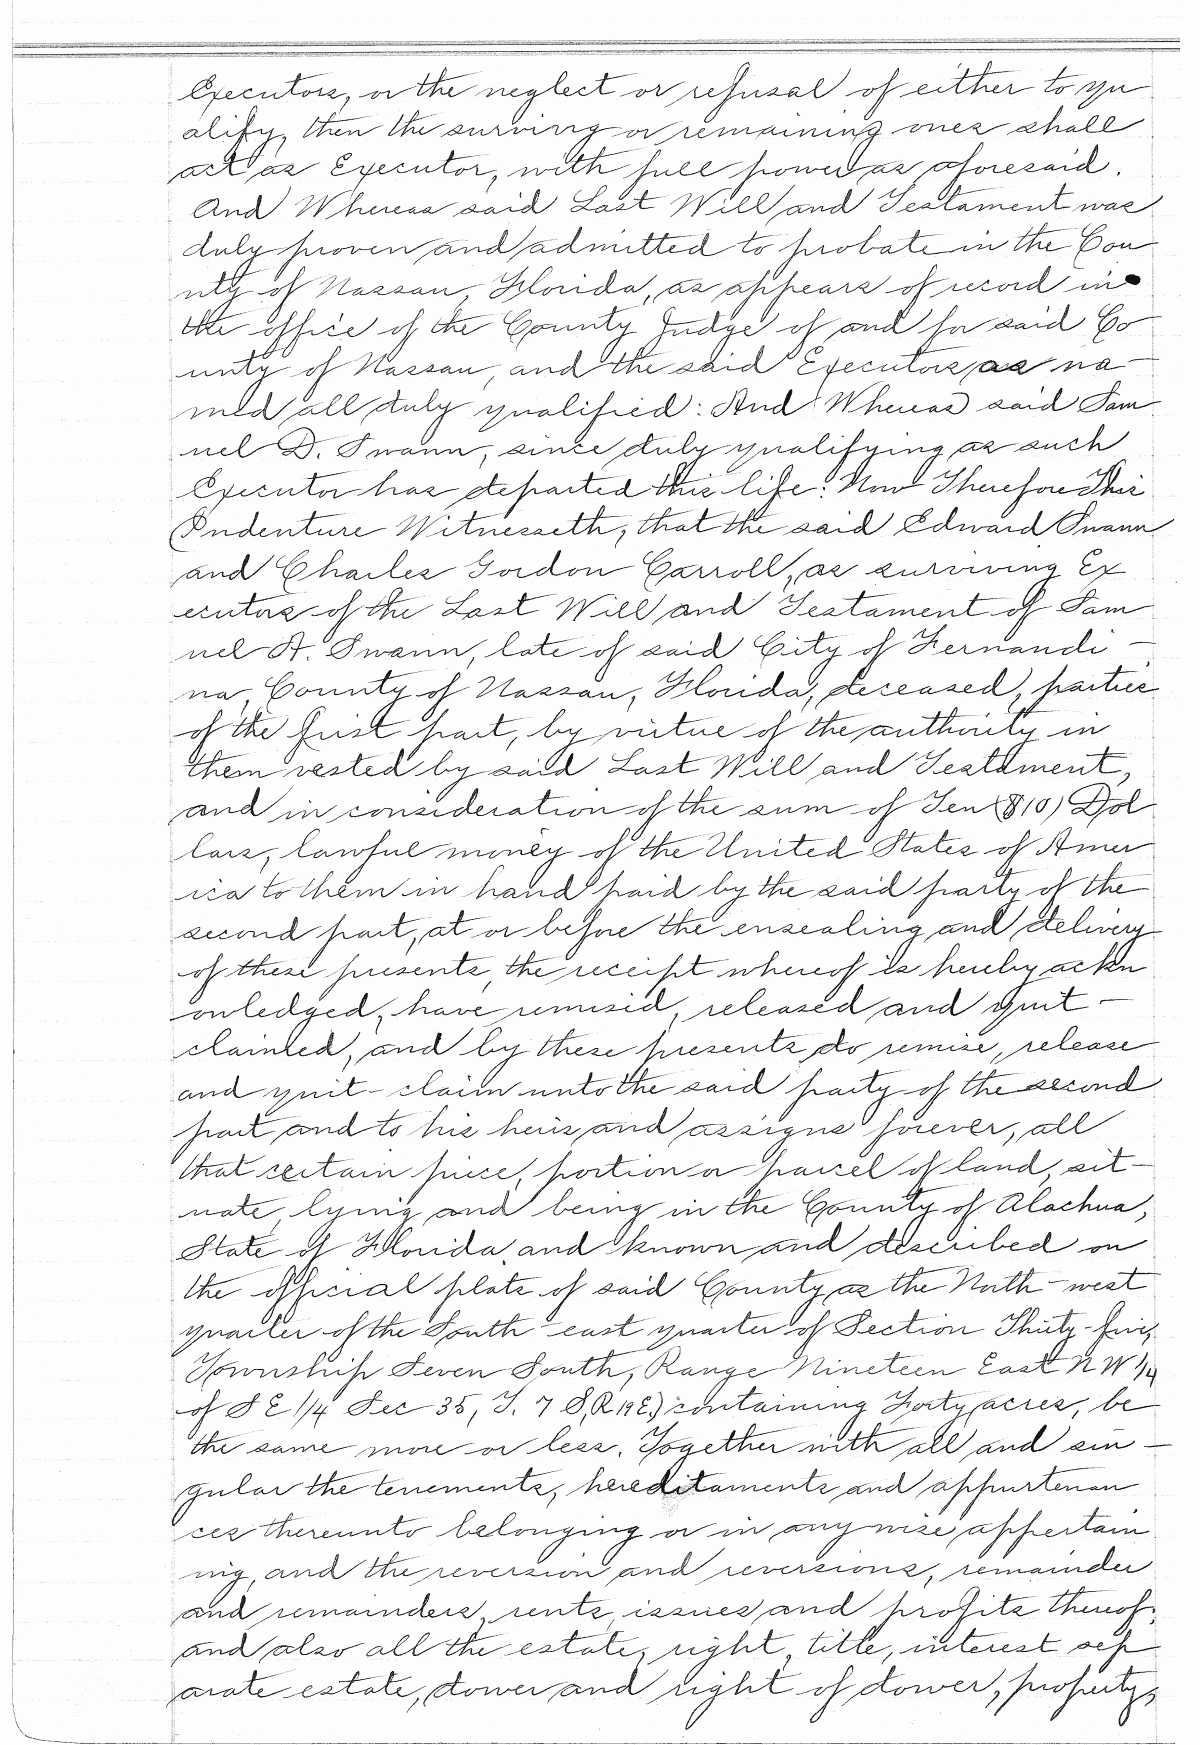 Executors, or the neglect or refusal of either to qu
alify, then the surviving or remaining ones shall
act as Executor, with full power as aforesaid.
And Whereas said Last Will and Testament was
duly proven and admitted to probate in the Cou
nty of Nassau, Florida, as appears of record in
the office of the County Judge of and for said Co
unty of Nassau, and the said Executors as na-
med all duly qualified: And Whereas said Sam
uel D. Swann, since duly qualifying as such
Executor has departed this life: Now Therefore This
Indenture Witnesseth, that the said Edward Swann
and Charles Gordon Carroll, as surviving Ex
ecutors of the Last Will and Testament of Sam
uel A. Swann, late of said City of Fernandi-
na, County of Nassau, Florida, deceased, parties
of the first part, by virtue of the authority in
them vested by said Last Will and Testament,
and in consideration of the sum of Ten ($10) Dol
lars, lawful money of the United States of Amer
ica to them in hand paid by the said party of the
second part, at or before the ensealing and delivery
of these presents, the receipt whereof is hereby ackn
owledged, have remised, released and quit-
claimed, and by these presents do remise, release
and quit-claim unto the said party of the second
part and to his heirs and assigns forever, all
that certain piece, portion or parcel of land, sit-
uate, lying and being in the County of Alachua,
State of Florida, and known and described on
the official plats of said County as the North-west
quarter of the South east quarter of Section Thirty-five,
Township Seven South, Range Nineteen East N W 1/4
of S E 1/4 Sec 35, T. 7 S, R 19 E.) containing Forty acres, be
the same more or less. Together with all and sin-
gular the tenements, hereditaments and appurtenan
ces thereunto belonging or in any wise appertain
ing, and the reversion and reversions, remainder
and remainders, rents, issues and profits thereof,
and also all the estate, right, title, interest sep
arate estate, dower and right of dower, property,